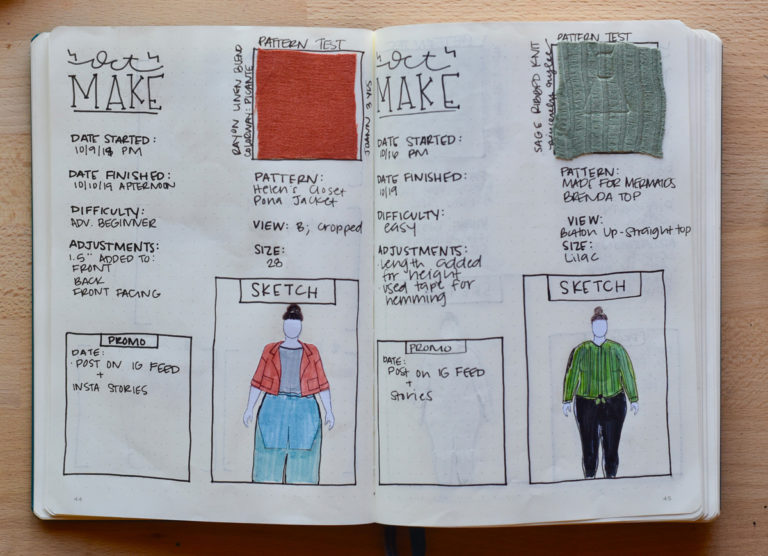 "Oct"
MAKE
PATTERN TEST
RAYON LINEN BLEND
COLORWAY: PICANTE
JOANN 3 YDS
DATE STARTED:
10/9/18 PM
DATE FINISHED:
10/10/19 AFTERNOON
DIFFICULTY:
ADV. BEGINNER
ADJUSTMENTS:
1.5" ADDED TO:
FRONT
BACK
FRONT FACING
PATTERN:
Helen's Closet
Pona Jacket
VIEW: B; cropped
SIZE:
28
PROMO
DATE:
· POST ON IG FEED
+
INSTA STORIES
SKETCH
44
"Oct"
MAKE
PATTERN TEST
SAGE RIBBED KNIT
DATE STARTED:
10/16 PM
DATE FINISHED:
10/19
DIFFICULTY:
easy
ADJUSTMENTS:
·Length added
for height
·used tape for
hemming
PATTERN:
MADE FOR MERMAIDS
BRENDA TOP
VIEW:
Button Up-Straight top
SIZE:
Lilac
PROMO
DATE:
Post on IG FEED
+
Stories
SKETCH
45